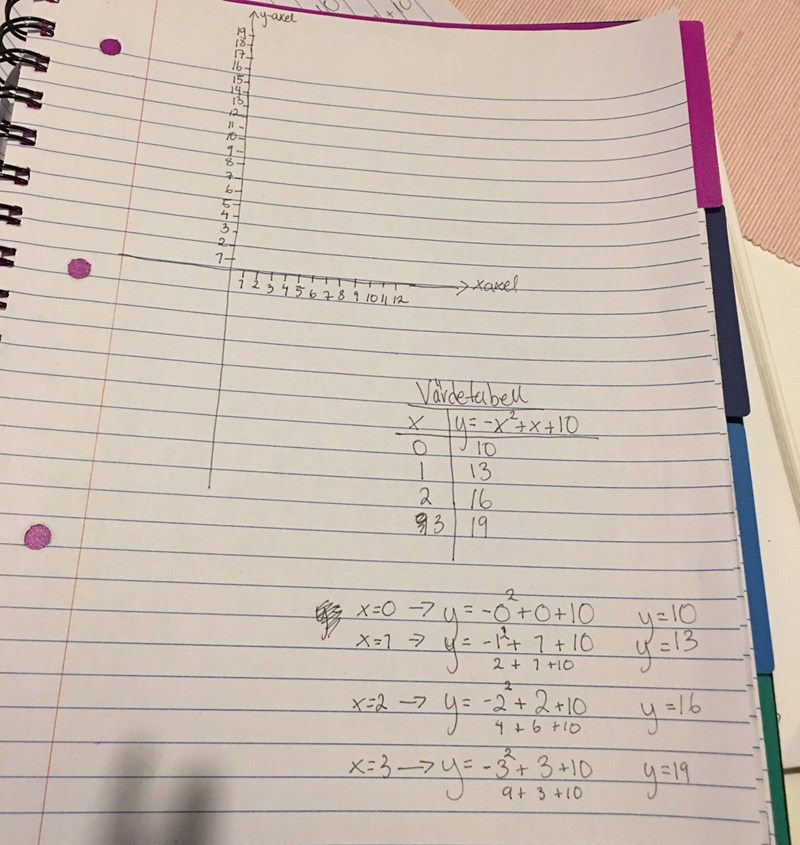 y-axel
19
18
17
16
15
14
13
12
11
10
9
8
7
6
5
4
3
2
1
1 2 3 4 5 6 7 8 9 10 11 12 xaxel
Värdetabell
x y=-x²+x+10
0 10
1 13
2 16
3 19
x=0 → y=-0²+0+10 y=10
x=1 → y=-1²+1+10 y=13
2+1+10
x=2 → y=-2²+2+10 y=16
4+6+10
x=3 → y=-3²+3+10 y=19
9+3+10